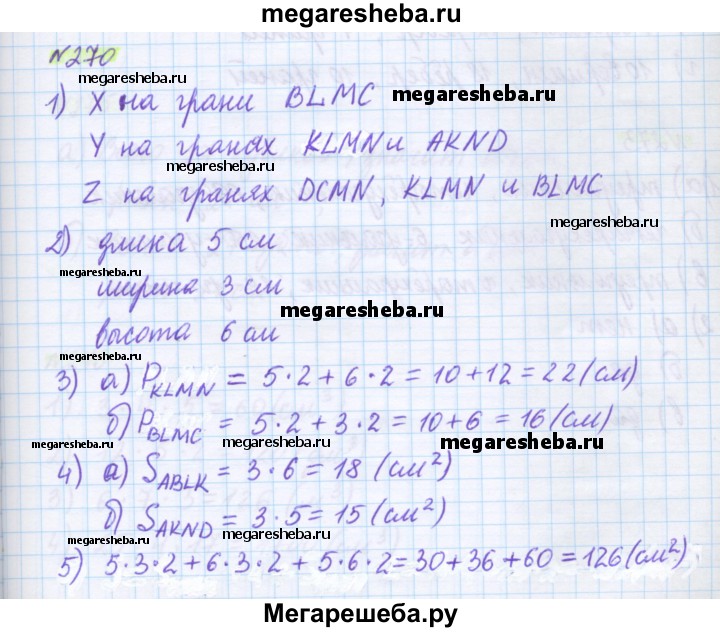 megaresheba.ru
№270
megaresheba.ru
1) X на грани BLMC megaresheba.ru
Y на гранях KLMN и AKND
megaresheba.ru
Z на гранях DCMN, KLMN и BLMC
megaresheba.ru
2) длина 5 см
megaresheba.ru
ширина 3 см
megaresheba.ru
высота 6 см
3) а) P_KLMN = 5·2+6·2=10+12=22(см)
megaresheba.ru
б) P_BLMC = 5·2+3·2=10+6=16(см)
megaresheba.ru megaresheba.ru
4) а) S_ABLK = 3·6=18 (см²)
megaresheba.ru
б) S_AKND = 3·5=15 (см²)
megaresheba.ru
5) 5·3·2+6·3·2+5·6·2=30+36+60=126(см²)
megaresheba.ru
Мегарешеба.ру